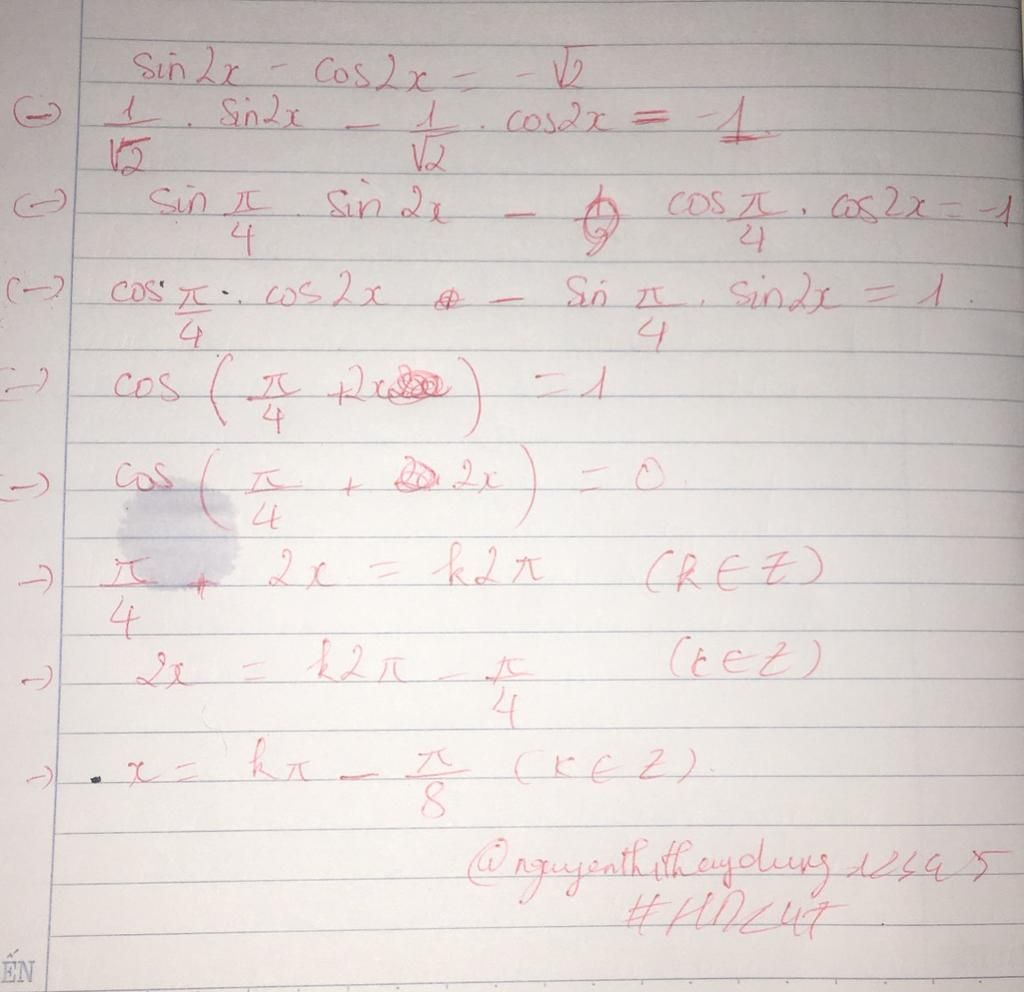 sin2x - cos2x = -√2
(-) 1/√2 . sin2x - 1/√2 . cos2x = -1
(-) sin π/4 . sin 2x - cos π/4 . cos2x = -1
(-) cos π/4 . cos 2x - sin π/4 . sin2x = 1
(-) cos (π/4 + 2x) = 1
(-) cos (π/4 + 2x) = 0
-) π/4 + 2x = k2π (k ∈ Z)
-) 2x = k2π - π/4 (k ∈ Z)
-) x = kπ - π/8 (k ∈ Z).
ẾN